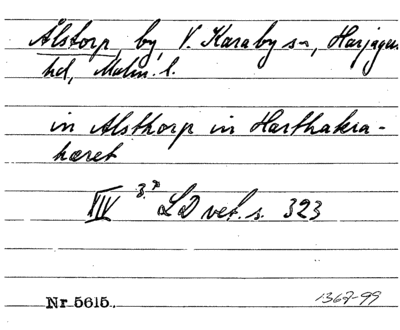 Ålstorp, by, V. Karaby sn, Harjagers
hd, Malm. l.
in Alsthorp in Harthakra-
hæret
XIV 3.o LD vet. s. 323
Nr 5615.
1367-99